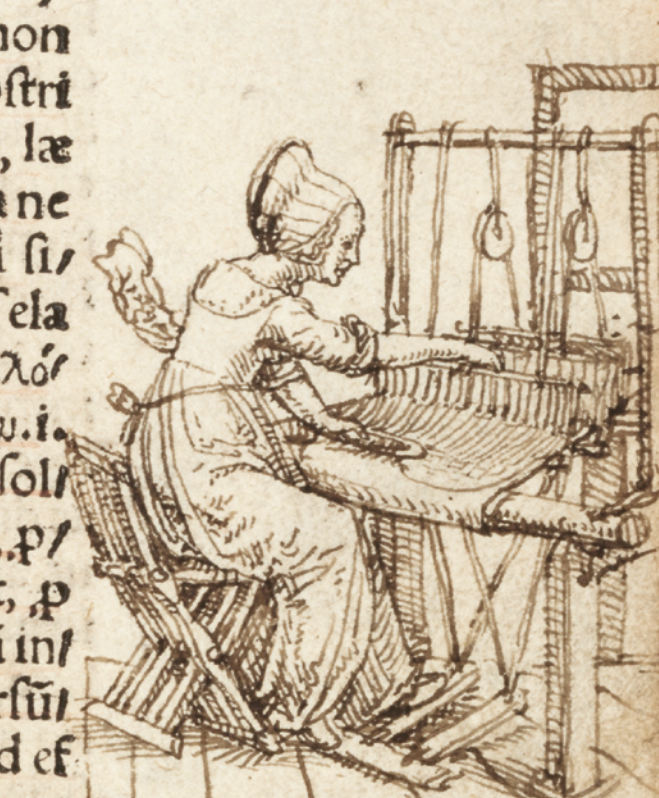 non
oſtri
, læ
ne
i ſi/
ela
λό/
.i.
ſoli
p/
, ꝓ
i in/
rſũ/
d eſ